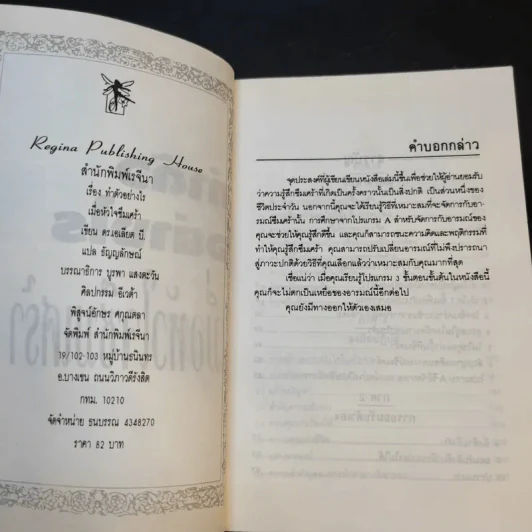 Regina Publishing House
สำนักพิมพ์เรจีนา
เรื่อง ทำตัวอย่างไร
เมื่อหัวใจซึมเศร้า
เขียน ดร.เอเลียต บี.
แปล ธัญญลักษณ์
บรรณาธิการ บูรพา แสงตะวัน
ศิลปกรรม อีเวต้า
พิสูจน์อักษร ศกุณตลา
จัดพิมพ์ สำนักพิมพ์เรจีนา
79/102-103 หมู่บ้านธนินทร
อ.บางเขน ถนนวิภาวดีรังสิต
กทม. 10210
จัดจำหน่าย ธนบรรณ 4348270
ราคา 82 บาท
คำบอกกล่าว
จุดประสงค์ที่ผู้เขียนเขียนหนังสือเล่มนี้ขึ้นเพื่อช่วยให้ผู้อ่านยอมรับ
ว่าความรู้สึกซึมเศร้าที่เกิดขึ้นครั้งคราวนั้นเป็นสิ่งปกติ เป็นส่วนหนึ่งของ
ชีวิตประจำวัน นอกจากนี้คุณจะได้เรียนรู้วิธีที่เหมาะสมที่จะจัดการกับอา-
รมณ์ซึมเศร้านั้น การศึกษาจากโปรแกรม A สำหรับจัดการกับอารมณ์ของ
คุณจะช่วยให้คุณรู้สึกดีขึ้น และคุณก็สามารถชนะความคิดและพฤติกรรมที่
ทำให้คุณรู้สึกซึมเศร้า คุณสามารถปรับเปลี่ยนอารมณ์ที่ไม่พึงปรารถนา
สู่ภาวะปกติด้วยวิธีที่คุณเลือกแล้วว่าเหมาะสมกับคุณมากที่สุด
เชื่อแน่ว่า เมื่อคุณเรียนรู้โปรแกรม 3 ขั้นตอนขั้นต้นในหนังสือนี้
คุณก็จะไม่ตกเป็นเหยื่อของอารมณ์นี้อีกต่อไป
คุณยังมีทางออกให้ตัวเองเสมอ